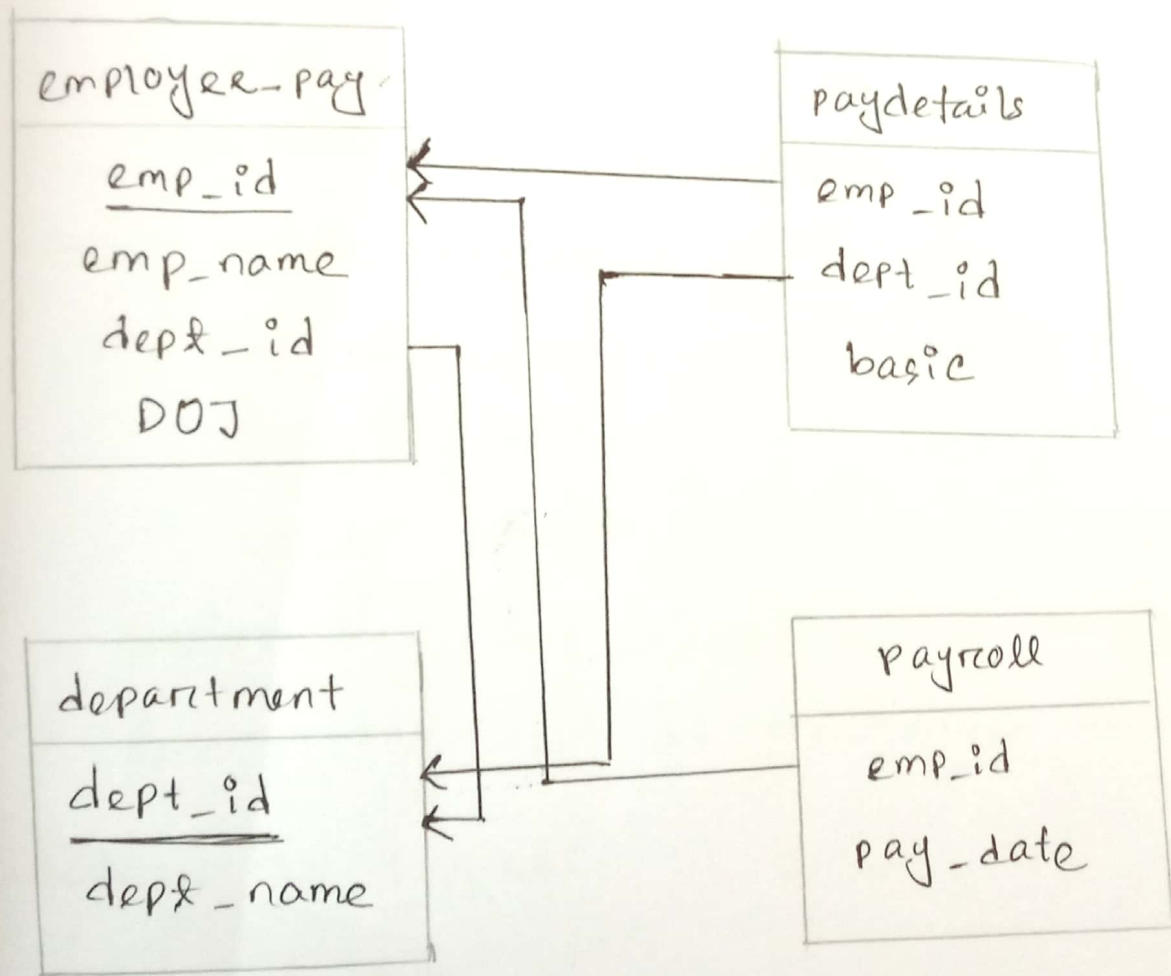 employee_pay
emp_id
emp_name
dept_id
DOJ
paydetails
emp_id
dept_id
basic
department
dept_id
dept_name
payroll
emp_id
pay_date